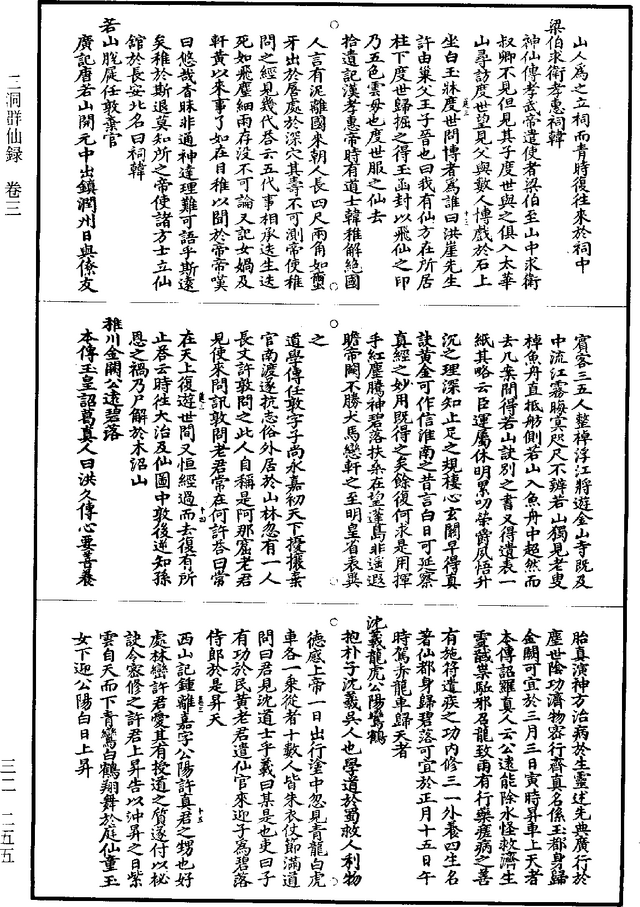 山人為之立祠而青時復往來於祠中
梁伯求衛孝惠祠韓
神仙傳孝武帝遣使者梁伯至山中求衛
叔卿不見但見其子度世與之俱入太華
山尋訪度世望見父與數人博戲於石上
坐白玉牀度世問博者為誰曰洪崖先生
許由巢父王子晉也曰我有仙方在所居
柱下度世歸掘之得玉函封以飛仙之印
乃五色雲母也度世服之仙去
拾遺記漢孝惠帝時有道士韓稚解絕國
人言有泥離國來朝人長四尺兩角如蠒
牙出於脣處於深穴其壽不可測帝使稚
問之經見幾代答云五代事相承迭生迭
死如飛塵細雨存沒不可論又記女媧及
軒黃以來事了如在目稚以聞於帝帝嘆
曰悠哉杳昧非通神達理難可語乎斯遠
矣稚於斯退莫知所之帝使諸方士立仙
館於長安北名曰祠韓
若山脫屣任敦棄官
廣記唐若山開元中出鎮潤州日與僚友
賓客三五人整棹浮江將遊金山寺既及
中流江霧晦冥咫尺不辨若山獨見老叟
棹魚舟直抵舫側若山入魚舟中超然而
去几案間得若山訣別之書又得遺表一
紙其略云臣運屬休明累叨榮爵夙悟升
沉之理深知止足之規棲心玄關早得真
訣黃金可作信淮南之昔言白日可延察
真經之妙用既得之矣餘復何求是用揮
手紅塵騰神碧落扶桑在望蓬島非遙遐
瞻帝闕不勝犬馬戀軒之至明皇省表異
之
道學傳任敦字子尚永嘉初天下擾攘棄
官南渡遂抗志俗外居於山林忽有一人
長丈許敦問之此人自稱是阿那窟老君
見使來問訊敦問老君常在何許答曰常
在天上復遊世間又恒經過而去復有所
止答云時往大治及仙圖中敦後逆知孫
恩之禍乃尸解於木沼山
稚川金闕公遠碧落
本傳玉皇詔葛真人曰洪久傳心要善養
胎真演神方治病於生靈述先典廣行於
塵世陰功濟物密行齊真名係玉都身歸
金闕可宜於三月三日寅時昇車上天者
本傳詔羅真人云公遠能除水怪救濟生
靈醫藥駈邪召龍致雨有行藥瘧病之善
有施符遺疾之功內修三一外養四生名
著仙都身歸碧落可宜於正月十五日午
時駕赤龍車歸天者
沈羲龍虎公陽鸞鶴
抱朴子沈羲吳人也學道於蜀救人利物
德感上帝一日出行塗中忽見青龍白虎
車各一乘從者十數人皆朱衣仗節滿道
問曰君見沈道士乎羲曰某是也吏曰子
有功於民黃老君遣仙官來迎子為碧落
侍郎於是昇天
西山記鍾離嘉字公陽許真君之甥也好
處林巒許君愛其有授道之質遂付以秘
訣令密修之許君上昇告以沖昇之日紫
雲自天而下青鸞白鶴翔舞於庭仙童玉
女下迎公陽白日上昇
三洞群仙録 卷三
三二 二五五